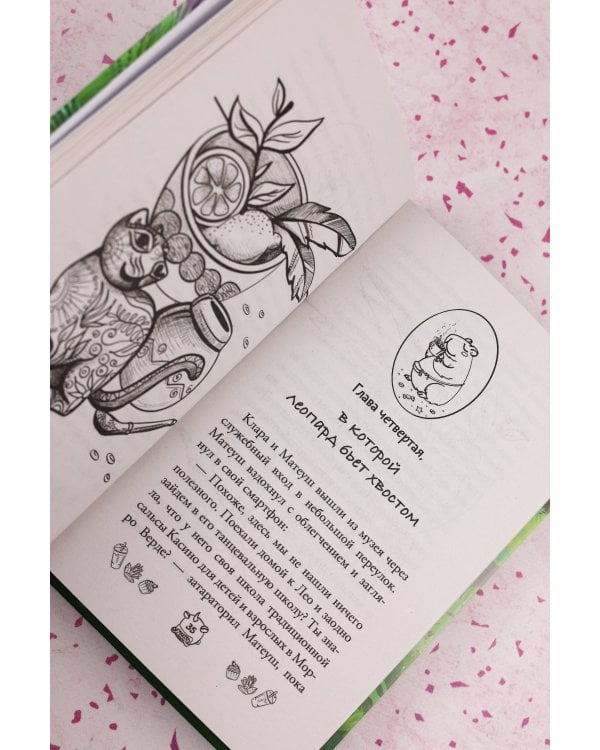 Глава четвертая,
в которой
леопард бьет хвостом
Клара и Матеуш вышли из музея через
служебный вход в небольшой переулок.
Матеуш вздохнул с облегчением и загля-
нул в свой смартфон:
— Похоже, здесь мы не нашли ничего
полезного. Поехали домой к Лео и заодно
зайдем в его танцевальную школу? Ты зна-
ла, что у него своя школа традиционной
сальсы Касино для детей и взрослых в Мор-
ро Верде? — затараторил Матеуш, пока
35